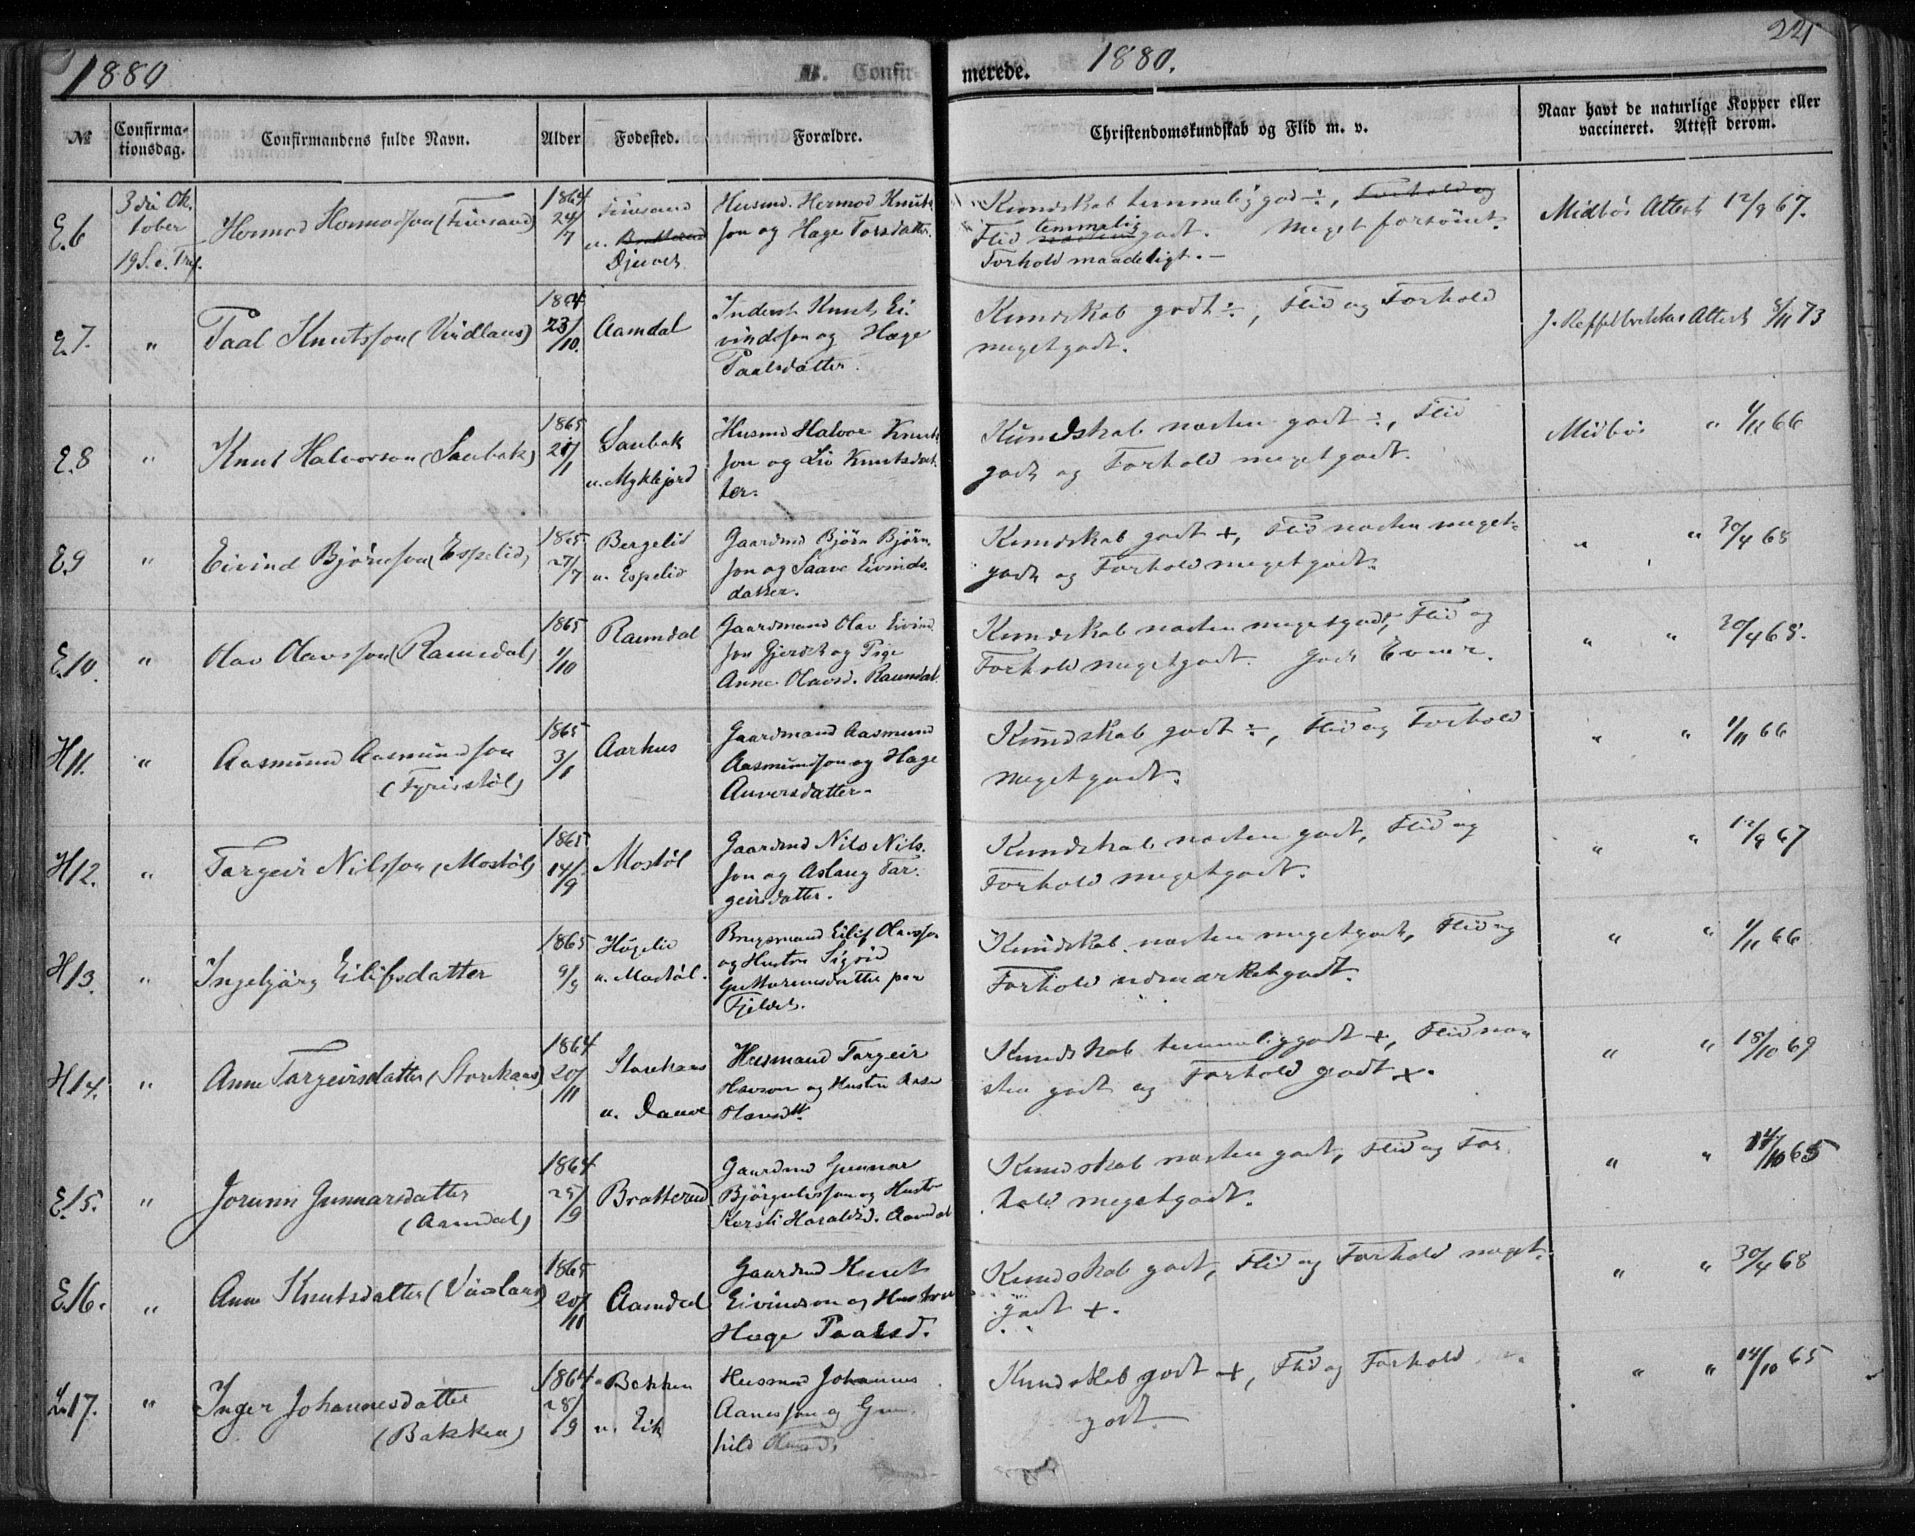 1880
B. Confirmerede.
1880.
221
№
Confirmationsdag.
Confirmandens fulde Navn.
Alder
Fodested.
Forældre.
Christendomskundskab og Flid m. v.
Naar havt de naturlige Kopper eller
vaccineret. Attest derom.
E.6
3die Ok-
tober
19 S. e. Tref.
Hermod Hermodsson (Finsand)
1864
24/7
Finsand
u. Bratterud
Djuves
Husmd. Hermod Knut
son og Hæge Torsdatter.
Kundskab temmelig god ÷, Forhold og
Flid temmelig godt. Meget forsömt.
Forhold maadeligt. —
Midbös Attest 12/9 67.
E.7.
"
Paal Knutsson (Vindlaus)
1864
23/10.
Aamdal
Inderst Knut Ei-
vindsson og Hæge
Paalsdatter.
Kundskab godt ÷, Flid og Forhold
meget godt.
J. Attest 8/11 73
E.8
"
Knut Halvorson (Saubak)
1865
21/1
Saubak
u. Myklejord
Husmd Halvor Knut
son og Liv Knutsdat-
ter.
Kundskab næsten godt ÷, Flid
godt og Forhold meget godt.
Midbös " 1/11 66
E.9
"
Eivind Björnson (Espelid)
1865
27/7
Bergelid
u. Espelid
Gaardmd Björn Björn-
son og Saave Eivinds-
datter.
Kundskab godt +, Flid næsten meget
godt og Forhold meget godt.
" " 30/4 68
E.10.
"
Olav Olavsson (Ramndal)
1865
1/10
Raundal
Gaardmand Olav Eivind
son Gjerdet og Pige
Anne Olavsd. Raundal
Kundskab næsten meget godt, Flid og
Forhold meget godt. Gode Evner.
" " 30/4 68.
H11.
"
Aasmund Aasmundson
(Fyristöl)
1865
3/1
Aarhus
Gaardmand Aasmund
Aasmundson og Hæge
Anversdatter.
Kundskab godt ÷, Flid og Forhold
meget godt.
" " 1/11 66
H12.
"
Targeir Nilsson (Mostöl)
1865
14/9
Mostöl
Gaardmd Nils Nils-
son og Aslaug Tar-
geirsdatter.
Kundskab næsten godt, Flid og
Forhold meget godt.
" " 12/9 67
H13.
"
Ingebjörg Eilifsdatter
1865
9/9
Hügelid
u. Mostöl.
Brugsmand Eilif Olavsson
og Hustru Sigrid
Guttormsdatter paa
Fjeldet.
Kundskab næsten meget godt, Flid og
Forhold udmærket godt.
" " 1/11 66
H14.
"
Anne Targeirsdatter (Storekaas)
1864
20/11
Storekaas
u. Daave
Husmand Targeir
Olavson og Hustru Aase
Olavsdt.
Kundskab temmelig godt +, Flid næ-
sten godt og Forhold godt +.
" " 18/10 69
E.15.
"
Jorunn Gunnarsdatter
(Aamdal)
1864
25/9
Bratterud
Gaardmd Gunnar
Björgulvsson og Hustr
Kersti Haraldsd. Aamdal
Kundskab næsten godt, Flid og For-
hold meget godt.
" " 14/10 65
E.16.
"
Anne Knutsdatter (Vindlaus)
1865
20/11
Aamdal
Gaardmd Knut
Eivindson og Hustru
Hæge Paalsd.
Kundskab godt, Flid og Forhold meget
godt +.
" " 30/4 68
L.17.
"
Inger Johannesdatter
(Bakken)
1864
28/9
Bakken
u. Eik
Husmd Johannes
Aanesson og Gun-
hild
Kundskab godt +, Flid og Forhold
godt
" " 14/10 65